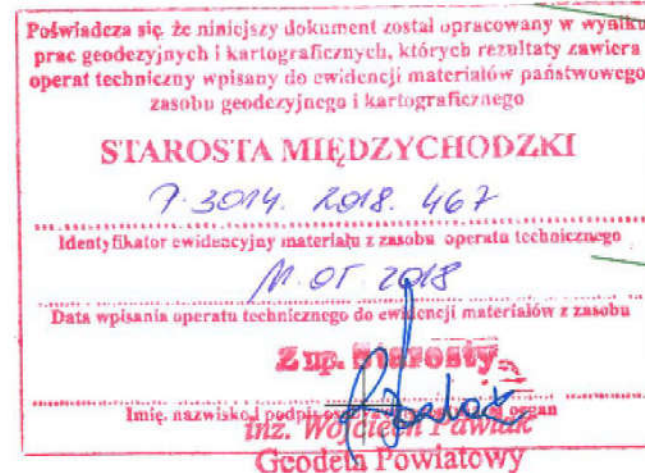 Poświadcza się, że niniejszy dokument został opracowany w wyniku
prac geodezyjnych i kartograficznych, których rezultaty zawiera
operat techniczny wpisany do ewidencji materiałów państwowego
zasobu geodezyjnego i kartograficznego
STAROSTA MIĘDZYCHODZKI
P.3014. 2018. 467
Identyfikator ewidencyjny materiału z zasobu operatu technicznego
11.05.2018
Data wpisania operatu technicznego do ewidencji materiałów z zasobu
Z up. Starosty
Imię, nazwisko i podpis organ
inż. Wojciech Pawlak
Geodeta Powiatowy